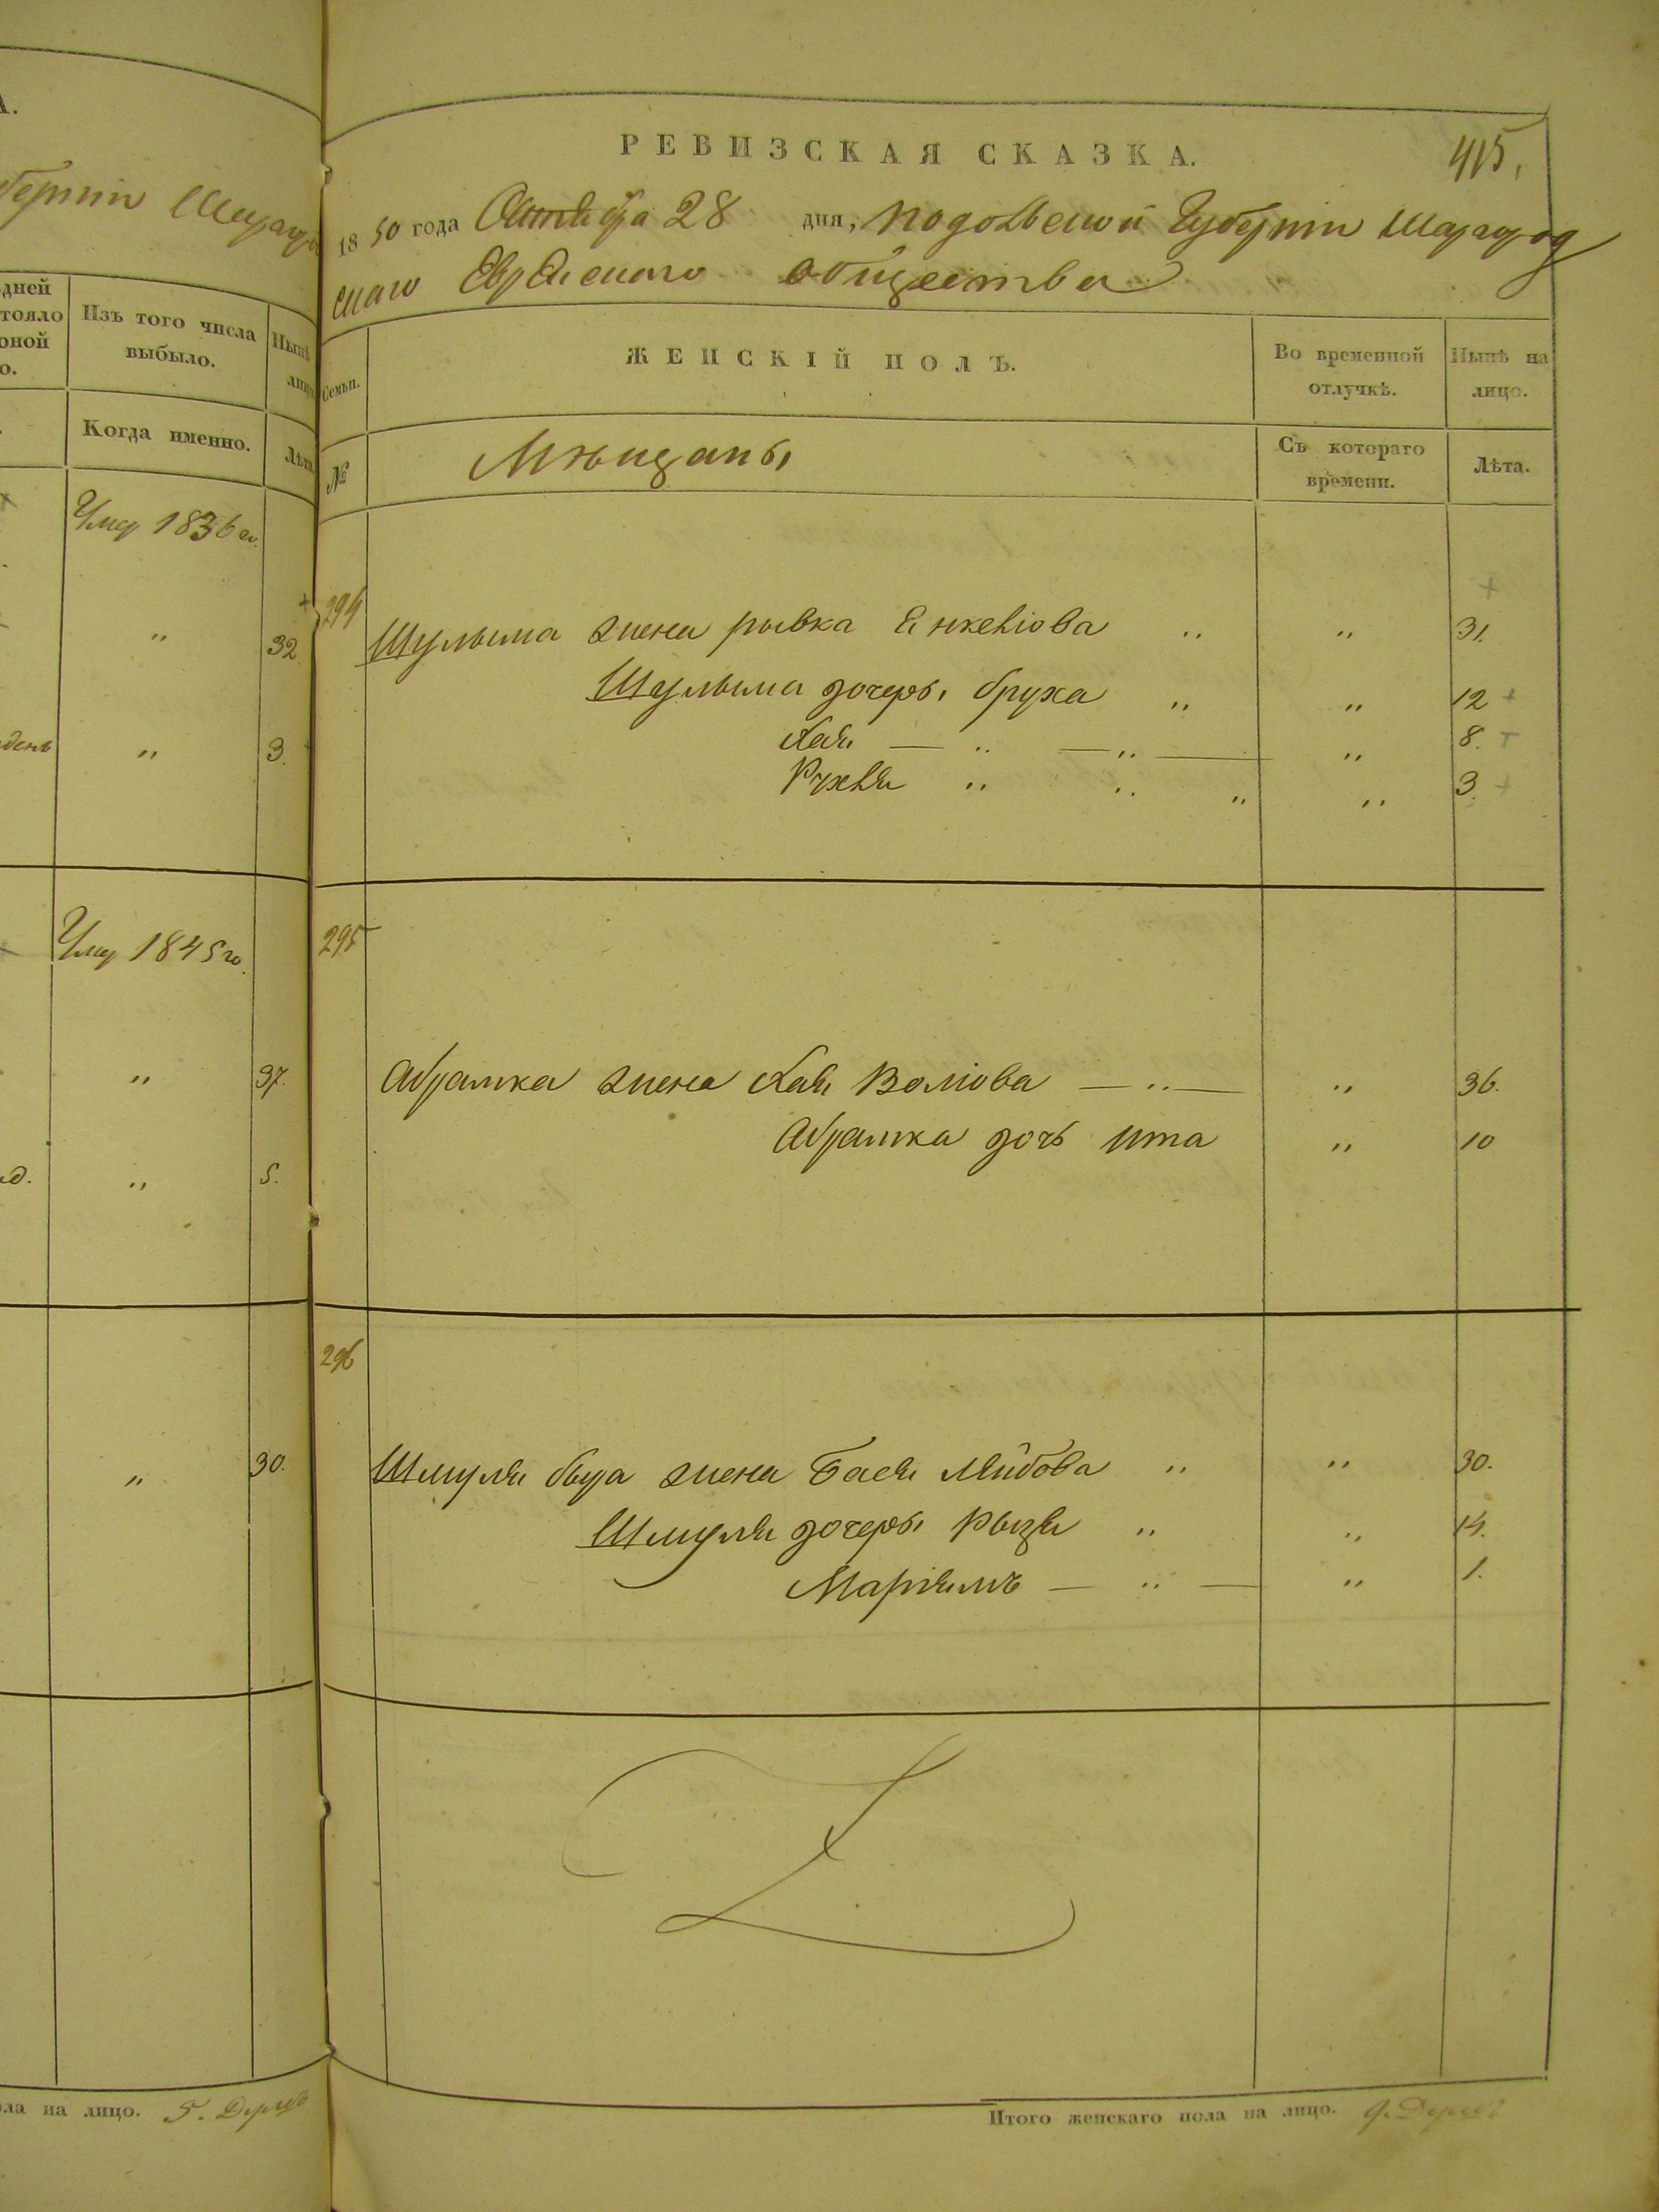 А.
Изъ того числа
выбыло.
Нынѣ
Когда именно.
Лѣта
Умер 1836 го.
"
32
"
3.
Умер 1845 го.
"
37.
"
5.
"
30.
на лицо. 5. Душъ
РЕВИЗСКАЯ СКАЗКА.
415.
1850 года Октября 28 дня, Подольской Губерніи Шарагрод
скаго Еврейскаго общества
Семьи.
ЖЕНСКІЙ ПОЛЪ.
Во временной
отлучкѣ.
Нынѣ на
лицо.
№
Мѣщаны
Съ котораго
времени.
Лѣта.
294
Шулыма жена рывка Янкеліова " " 31.
Шулыма дочеры бруха " " 12 +
Хая — " — " — " 8. +
Рухля " " " " 3. +
295
Абрамка жена Хая Волiова — " — " 36.
Абрамка дочь ита " 10
296
Шмуля жена Бася Лейбова " " 30.
Шмуля дочеры Рызя " " 14.
Маріямъ — " — " 1.
Итого женскаго пола на лицо. 9. Душъ